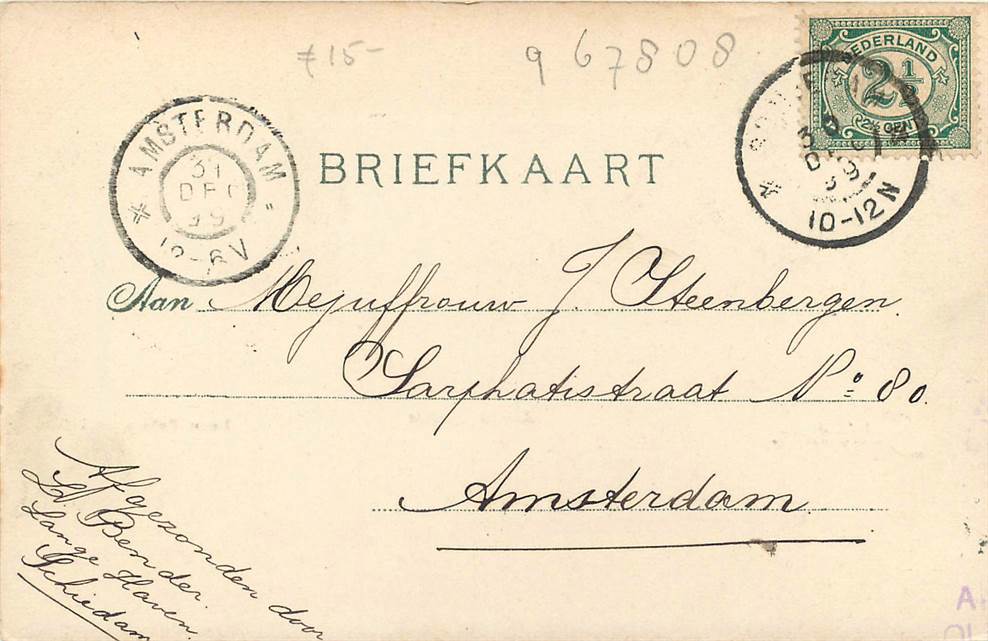 ≠ 15-
9 67808
NEDERLAND
2½
2½ CENT
AMSTERDAM
31
DEC
99
12-6V
30
DEC
10-12N
BRIEFKAART
Aan Mejuffrouw J. Steenbergen
Sarphatistraat No: 80.
Amsterdam
Afgezonden door
Bender.
Lange Haven.
Schiedam